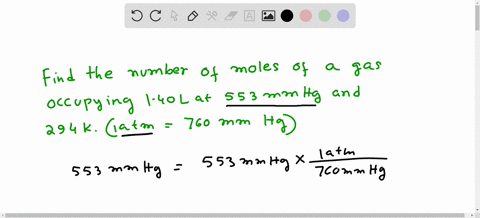 Find the number of moles of a gas
occupying 1.40L at 553 mmHg and
294k. (1atm = 760 mm Hg)
553 mmHg = 553 mmHg × 1atm / 760mmHg